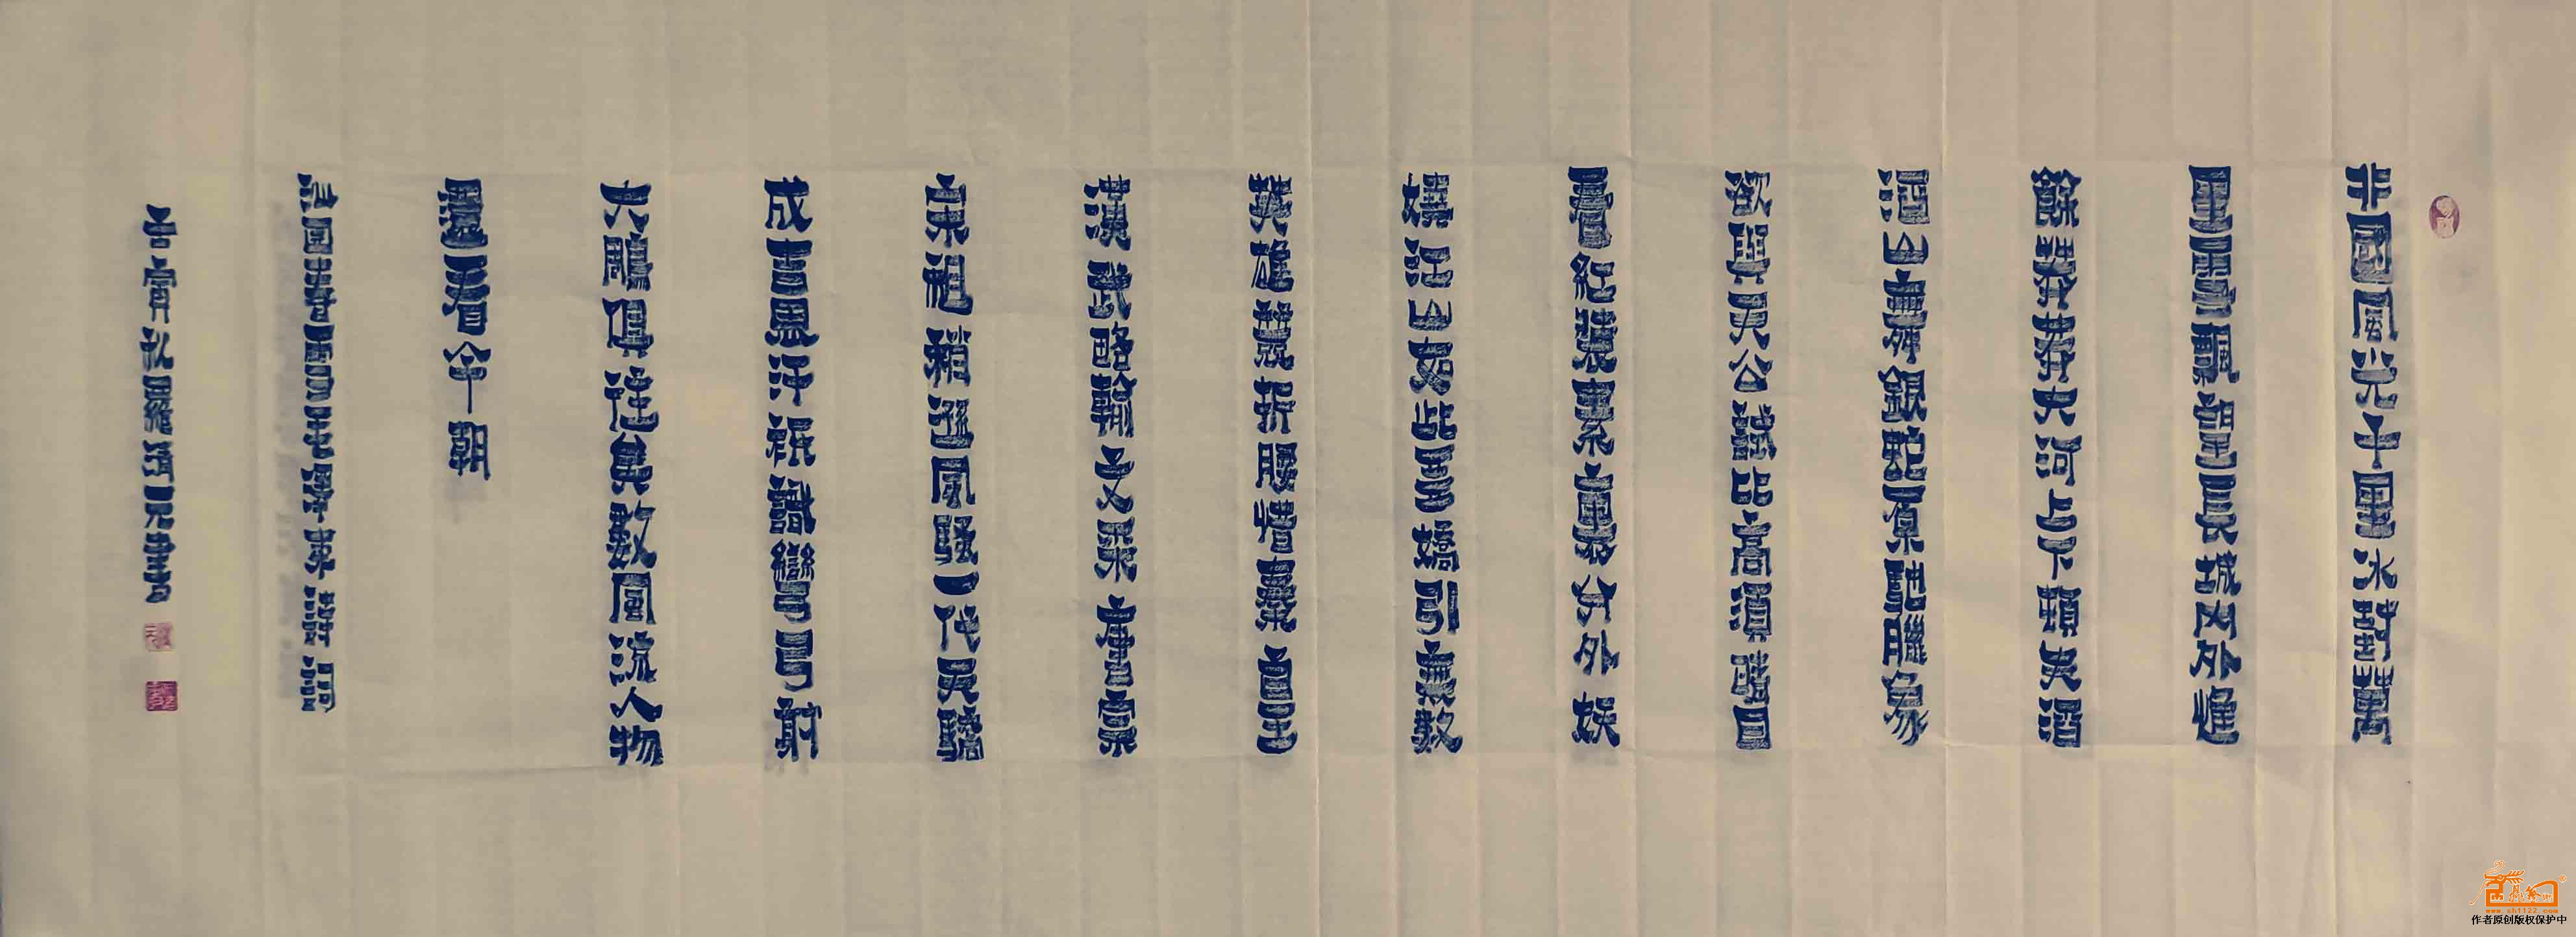 北國風光千里冰封萬
里雪飄望長城内外惟
餘莽莽大河上下頓失滔
滔山舞銀蛇原馳臘象
欲與天公試比高須晴日
看紅裝素裹分外妖
嬈江山如此多嬌引無數
英雄競折腰惜秦皇
漢武略輸文采唐宗
宋祖稍遜風騷一代天驕
成吉思汗祇識彎弓射
大雕俱往矣數風流人物
還看今朝
沁園春雪毛澤東詩詞
秋羅清元書
作者原创版权保护中